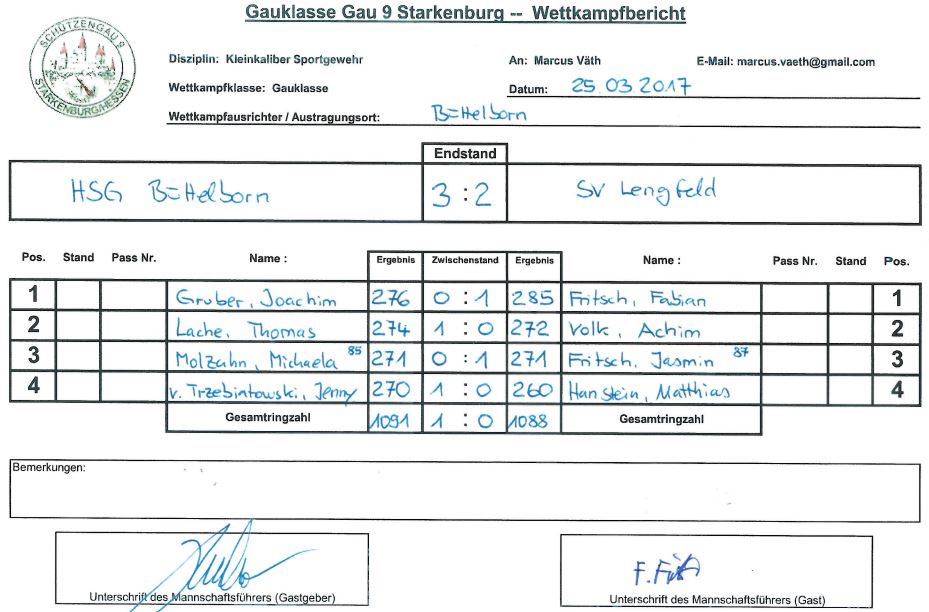 Gauklasse Gau 9 Starkenburg -- Wettkampfbericht
SCHÜTZENGAU 9
STARKENBURG/HESSEN
Disziplin: Kleinkaliber Sportgewehr An: Marcus Väth E-Mail: marcus.vaeth@gmail.com
Wettkampfklasse: Gauklasse Datum: 25.03.2017
Wettkampfausrichter / Austragungsort: Büttelborn
Endstand
HSG Büttelborn 3 : 2 SV Lengfeld
Pos. Stand Pass Nr. Name : Ergebnis Zwischenstand Ergebnis Name : Pass Nr. Stand Pos.
1 Gruber, Joachim 276 0 : 1 285 Fritsch, Fabian 1
2 Lache, Thomas 274 1 : 0 272 Volk, Achim 2
3 Molzahn, Michaela 85 271 0 : 1 271 Fritsch, Jasmin 87 3
4 v. Trzebiatowski, Jenny 270 1 : 0 260 Hanstein, Matthias 4
Gesamtringzahl 1091 1 : 0 1088 Gesamtringzahl
Bemerkungen:
Unterschrift des Mannschaftsführers (Gastgeber) Unterschrift des Mannschaftsführers (Gast)